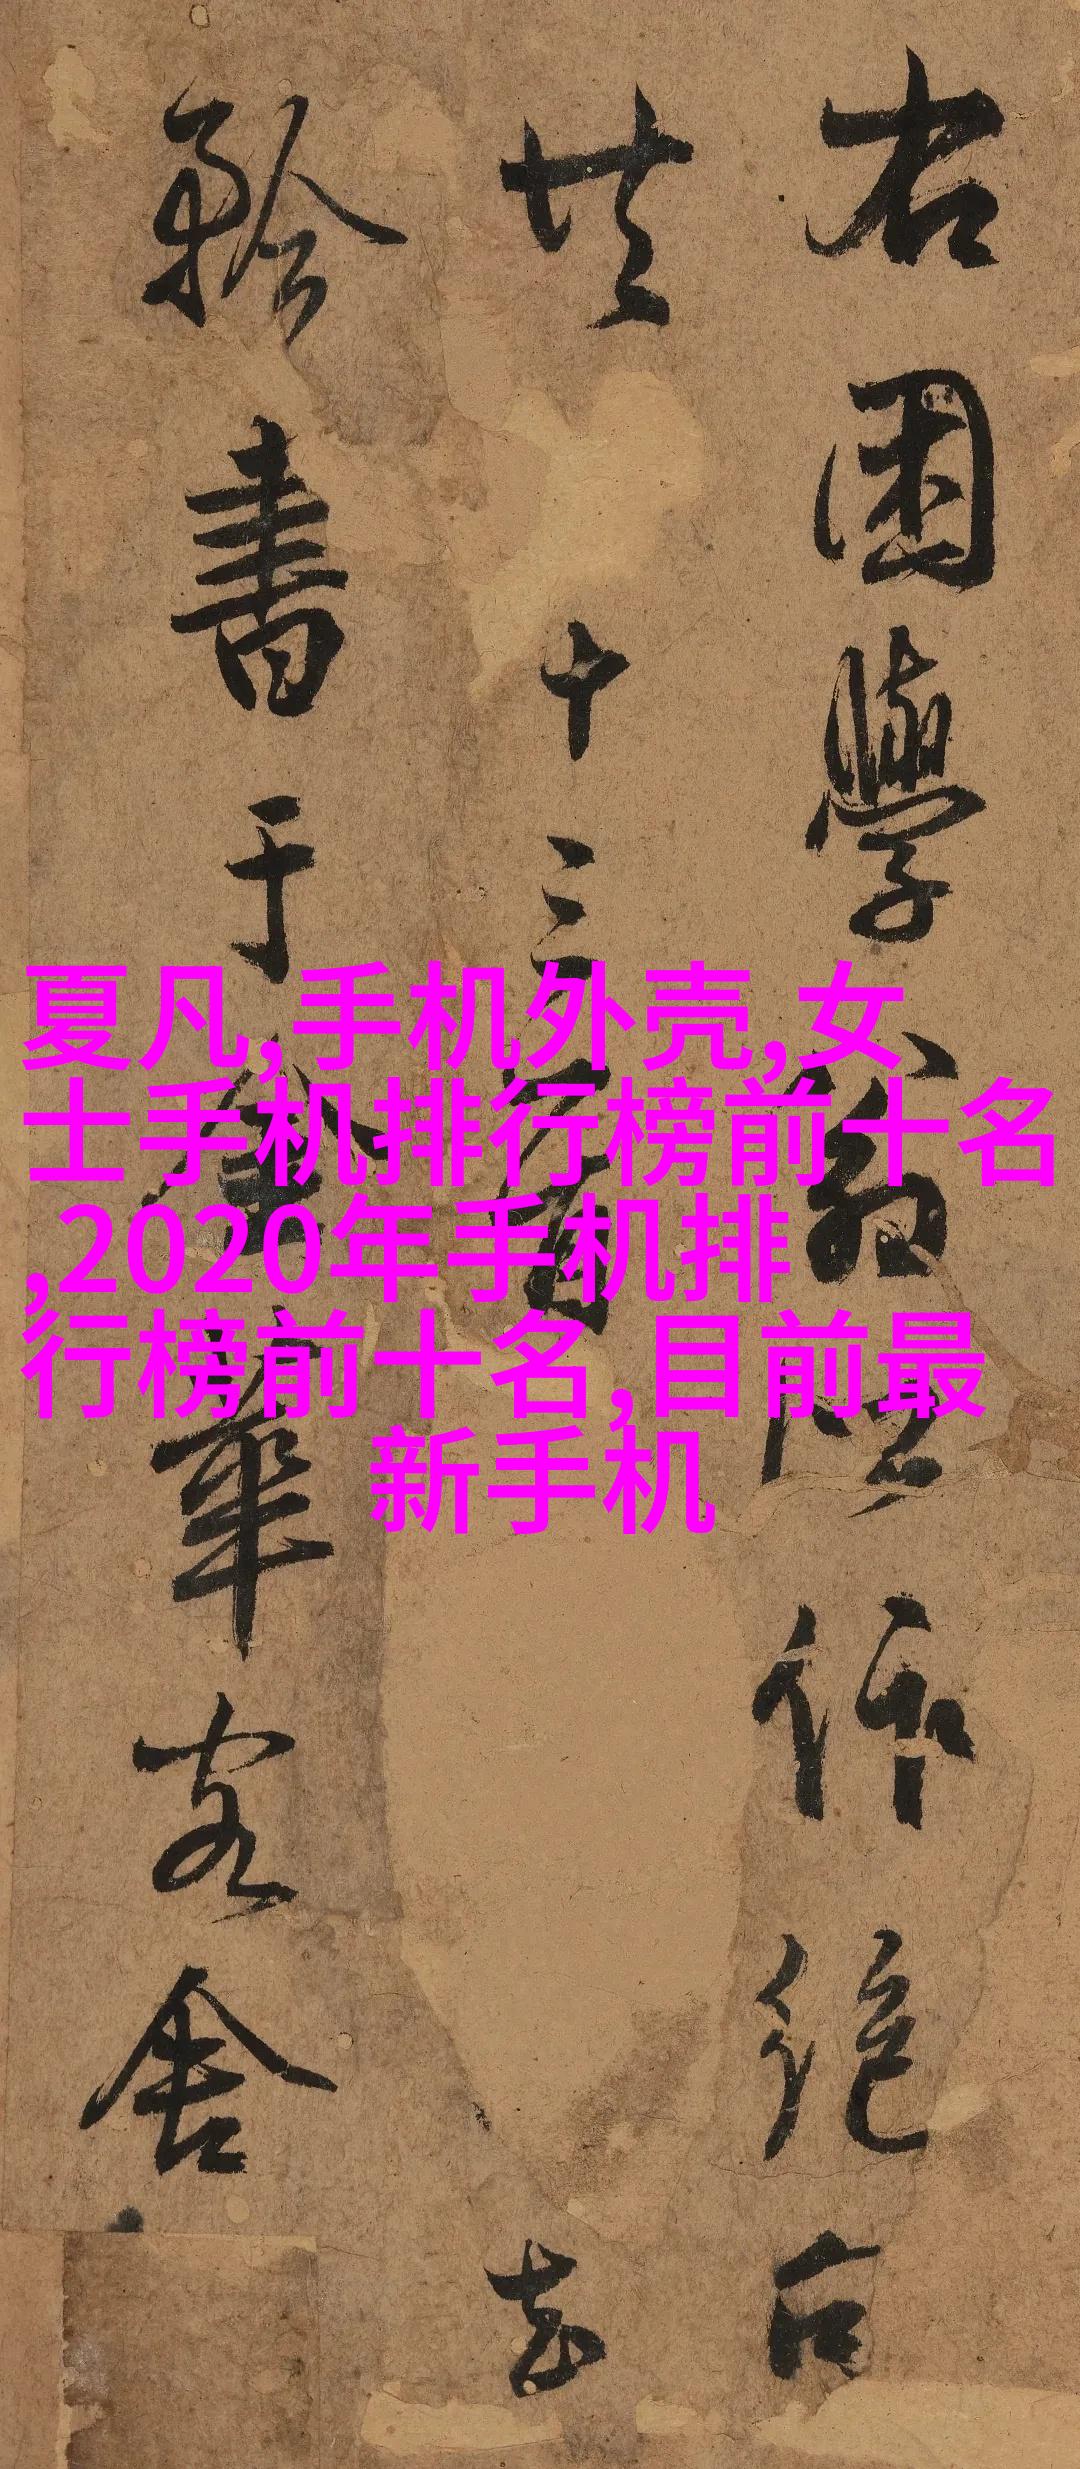 右困學翁所作絕句
共十三首
書于
華客舍
夏凡,手机外壳,女
士手机排行榜前十名
,2020年手机排
行榜前十名,目前最
新手机